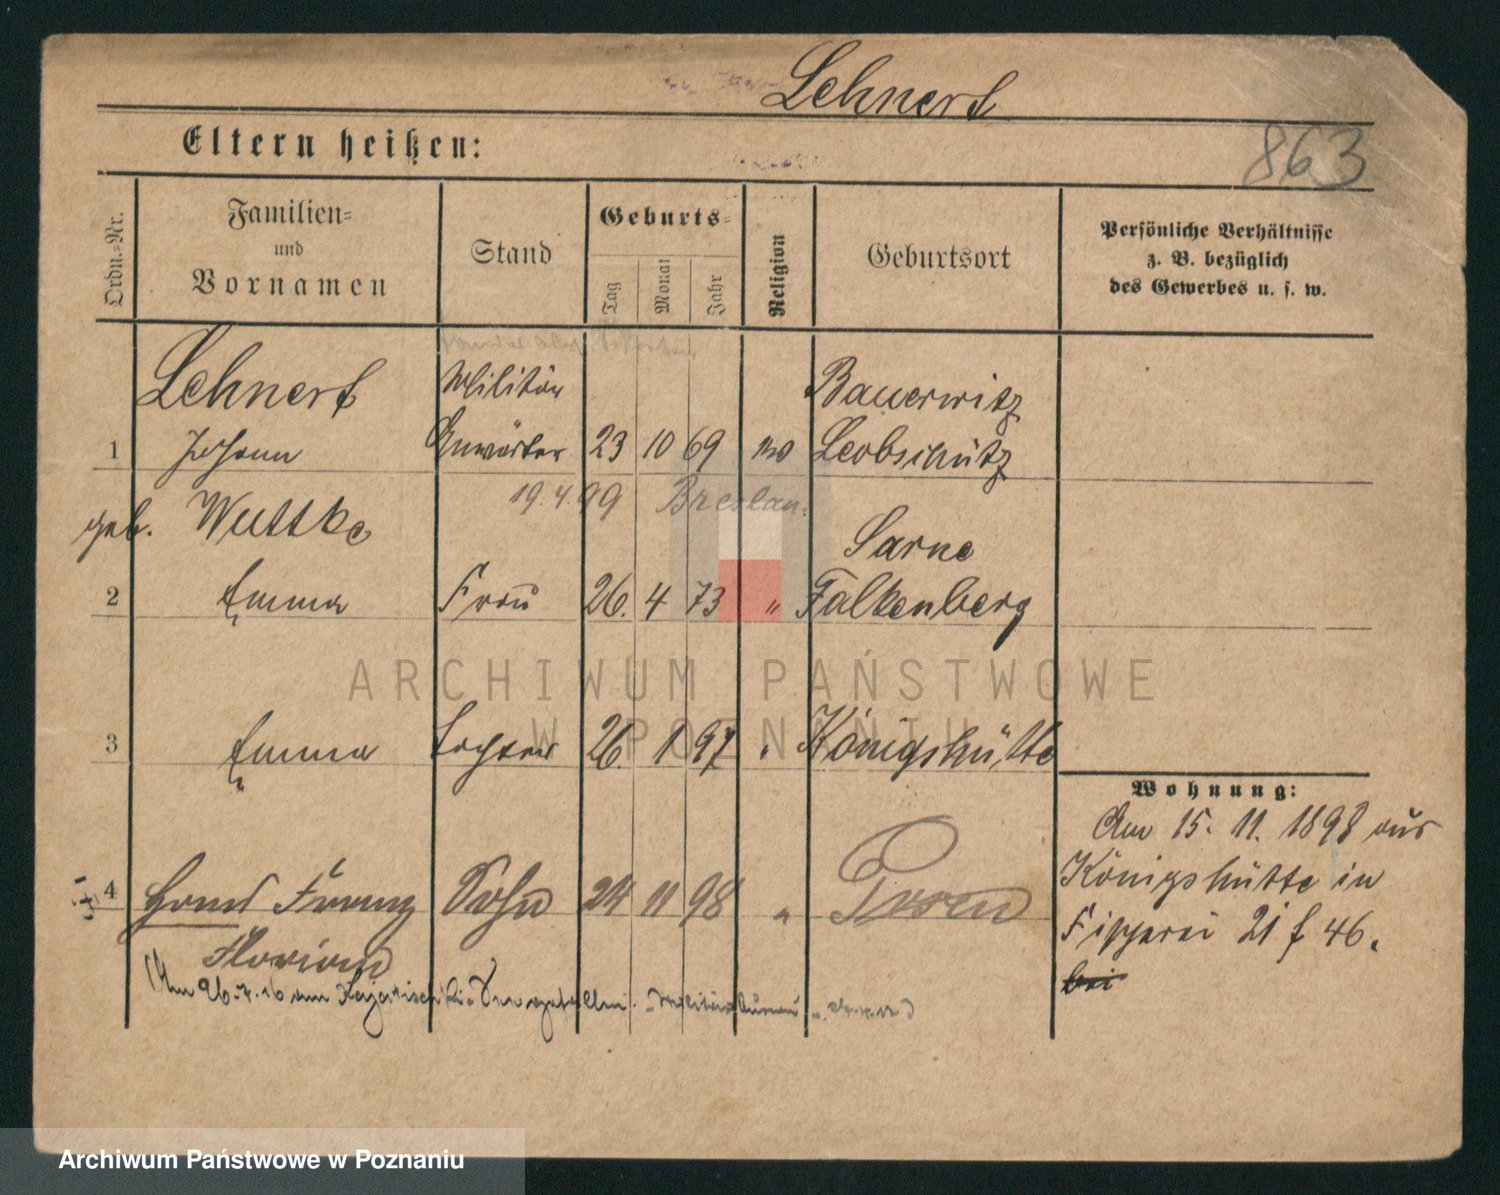 Lehnert
Eltern heißen:
863
Ordn.-Nr.
Familien-
und
Vornamen
Stand
Geburts-
Tag
Monat
Jahr
Religion
Geburtsort
Persönliche Verhältnisse
z. B. bezüglich
des Gewerbes u. s. w.
Lehnert Militär Bauerwitz
1 Johann Anwärter 23 10 69 Leobschütz
19.4.99 Breslau.
geb. Wuttke Sarne
2 Emma Frau 26. 4 73 " Falkenberg
ARCHIWUM PAŃSTWOWE
W POZNANIU
3 Emma Tochter 26. 1 97 " Königshütte
Wohnung:
Am 15. 11. 1898 aus
Königshütte in
21 f 46.
bei
4 Franz Sohn 24 11 98 " Posen
Florian
Am 26.7.16
Archiwum Państwowe w Poznaniu